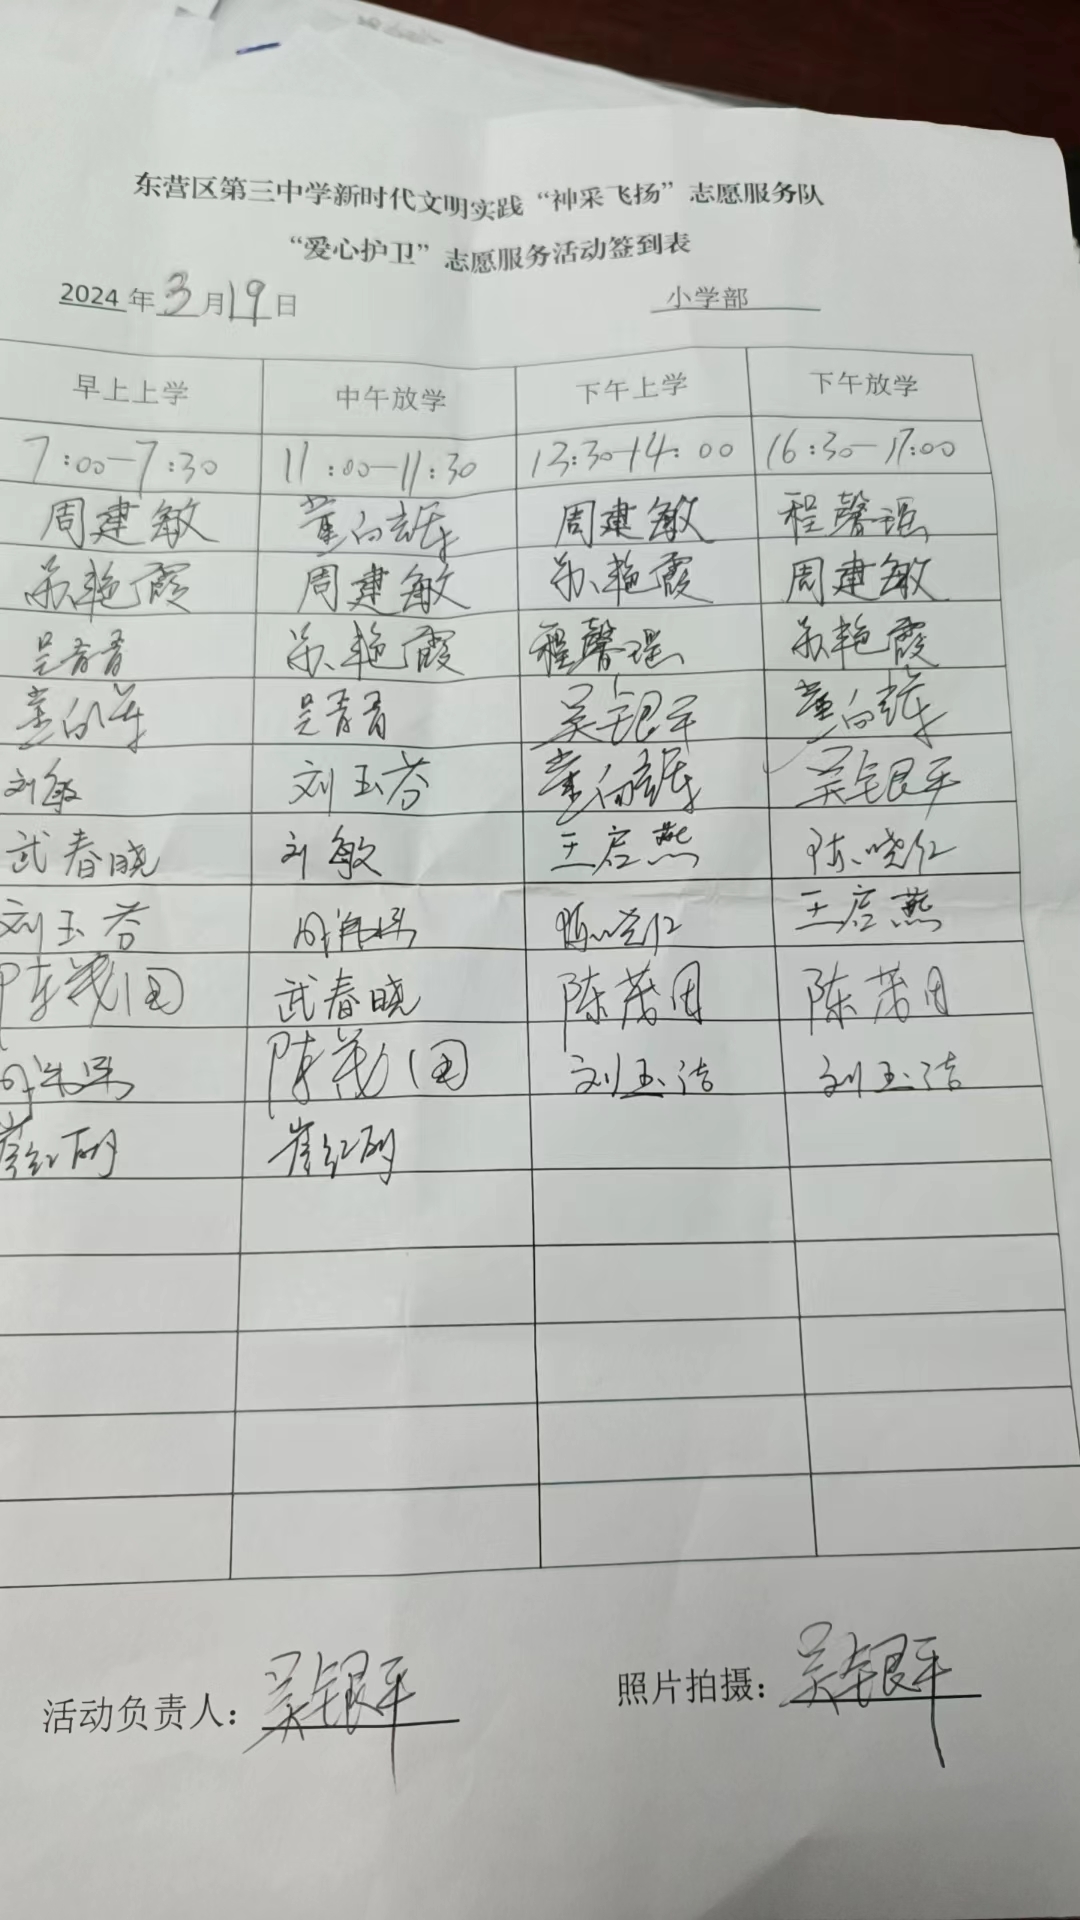 东营区第三中学新时代文明实践“神采飞扬”志愿服务队
“爱心护卫”志愿服务活动签到表
2024年3月19日 小学部
早上上学 中午放学 下午上学 下午放学
7:00—7:30 11:00—11:30 13:30—14:00 16:30—17:00
周建敏 董向 周建敏 程馨瑶
苏艳霞 周建敏 苏艳霞 周建敏
吴青青 苏艳霞 程馨瑶 苏艳霞
董向 吴青青 吴银平 董向
刘敏 刘玉芬 董向 吴银平
武春晓 刘敏 王启燕 陈晓红
刘玉芬 陈晓红 王启燕
陈茂国 武春晓 陈茂田 陈茂田
陈茂国 刘玉洁 刘玉洁
崔红丽 崔红丽
活动负责人：吴银平 照片拍摄：吴银平